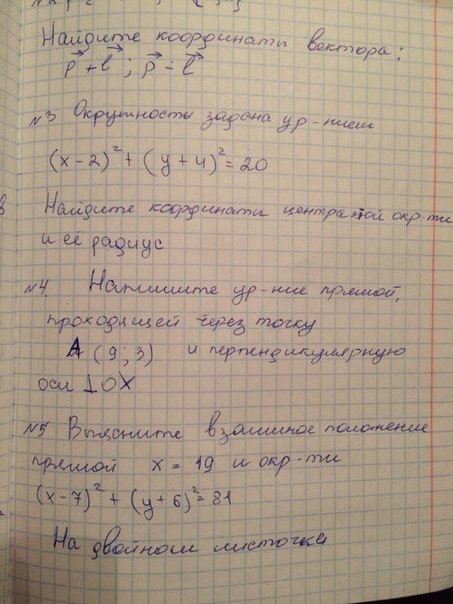 Найдите координаты вектора:
p + l ; p - l
№3 Окружность задана ур-нием
(x - 2)² + (y + 4)² = 20
Найдите координаты центра этой окр-ти
и её радиус
№4. Напишите ур-ние прямой,
проходящей через точку
A (9; 3) и перпендикулярную
оси ⊥ OX
№5 Выясните взаимное положение
прямой x = 19 и окр-ти
(x-7)² + (y+6)² = 81
На двойном листочке